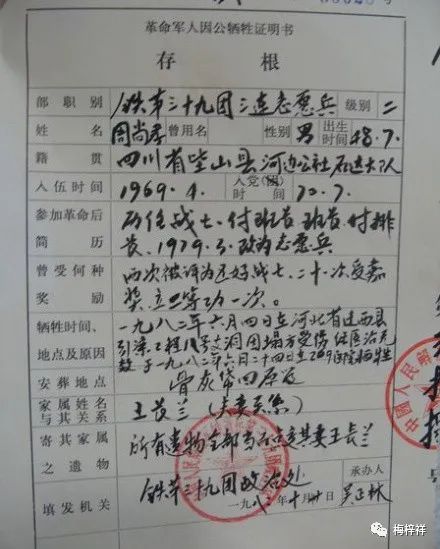 革命军人因公牺牲证明书
存根
部职别 铁第三十九团三连志愿兵 级别 二
姓名 周尚孝 曾用名 性别 男 出生时间 48.7.
籍贯 四川省璧山县河边公社 大队
入伍时间 1969.4. 入党(团)时间 70.7.
参加革命后 历任战士、付班长 班长、付排
简历 长、1979.3.改为志愿兵
曾受何种 两次被评为五好战士、二十次受嘉
奖励 奖、立三等功一次。
牺牲时间、 一九八二年六月四日在河北省迁西县
地点及原因 引滦工程八号支洞因塌方受伤,经医治无
效于一九八二年六月二十四日在269医院牺牲
安葬地点 骨灰带回原籍
家属姓名 王长兰(夫妻关系)
与其关系
寄其家属 所有遗物全部 其妻王长兰
之遗物
填发机关 铁第三十九团政治处 承办人
一九八 年十月 日 吴正林
中国人民解
梅梓祥